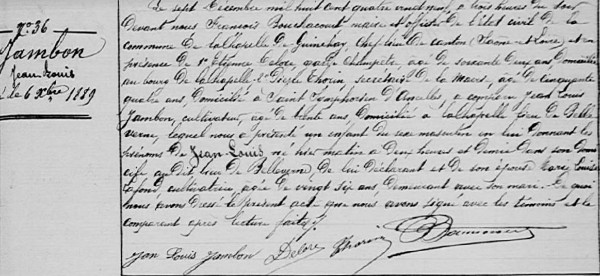 N° 36
Jambon
Jean Louis
le 6 xbre 1889
Le sept Décembre mil huit cent quatre vingt neuf, à trois heures du soir
Devant nous François Bouchacourt maire et officier de l'état civil de la
commune de Lachapelle de Guinchay, Chef lieu de canton (Saône et Loire) et en
présence de 1° Etienne Delore garde champêtre, âgé de soixante deux ans domicilié
au bourg de Lachapelle 2° Thorin, secrétaire de la mairie, âgé de cinquante
quatre ans, domicilié à Saint Symphorien d'Ancelles, a comparu Jean Louis
Jambon, cultivateur, âgé de trente ans, domicilié à Lachapelle lieu de Belle
verne, lequel nous a présenté un enfant du sexe masculin en lui donnant les
prénoms de Jean Louis né hier matin à deux heures et demie dans son domi
cile au dit lieu de Belleverne, de lui déclarant et de son épouse Marie Louise
Lafond, cultivatrice, âgée de vingt six ans, demeurant avec son mari. De quoi
nous avons dressé le présent acte que nous avons signé avec les témoins et le
comparant après lecture faite.
Jean Louis Jambon Delore Thorin